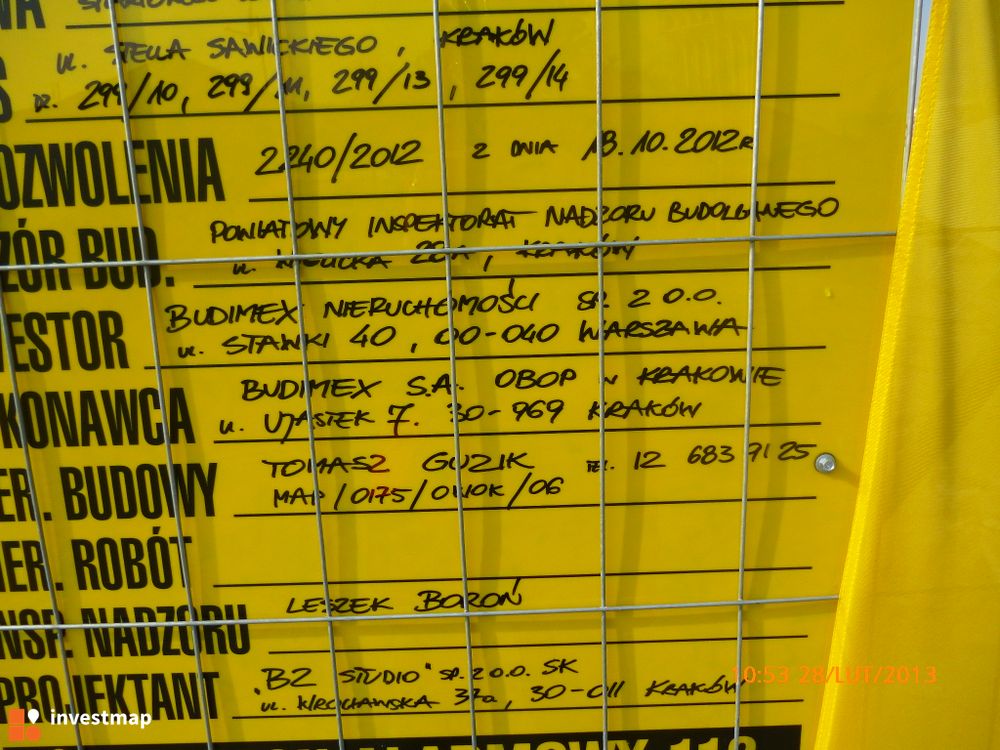 WA
S ul. STELLA SAWICKIEGO, KRAKÓW
DZ. 299/10, 299/11, 299/13, 299/14
OZWOLENIA 2240/2012 Z DNIA 18.10.2012R
ZÓR BUD. POWIATOWY INSPEKTORAT NADZORU BUDOLWNEGO
ul. WIELICKA 28A, KRAKÓW
ESTOR BUDIMEX NIERUCHOMOŚCI SP. Z O.O.
ul. STAWKI 40, 00-040 WARSZAWA
KONAWCA BUDIMEX S.A. OBOP W KRAKOWIE
ul. UJASTEK 7. 30-969 KRAKÓW
ER. BUDOWY TOMASZ GUZIK TEL. 12 683 71 25
MAP/0175/OWOK/06
ER. ROBÓT
NSP. NADZORU LESZEK BOROŃ
PROJEKTANT "BZ STUDIO" SP. Z O.O. SK
ul. WROCŁAWSKA 37a, 30-011 KRAKÓW
10:53 28/LUT/2013
investmap